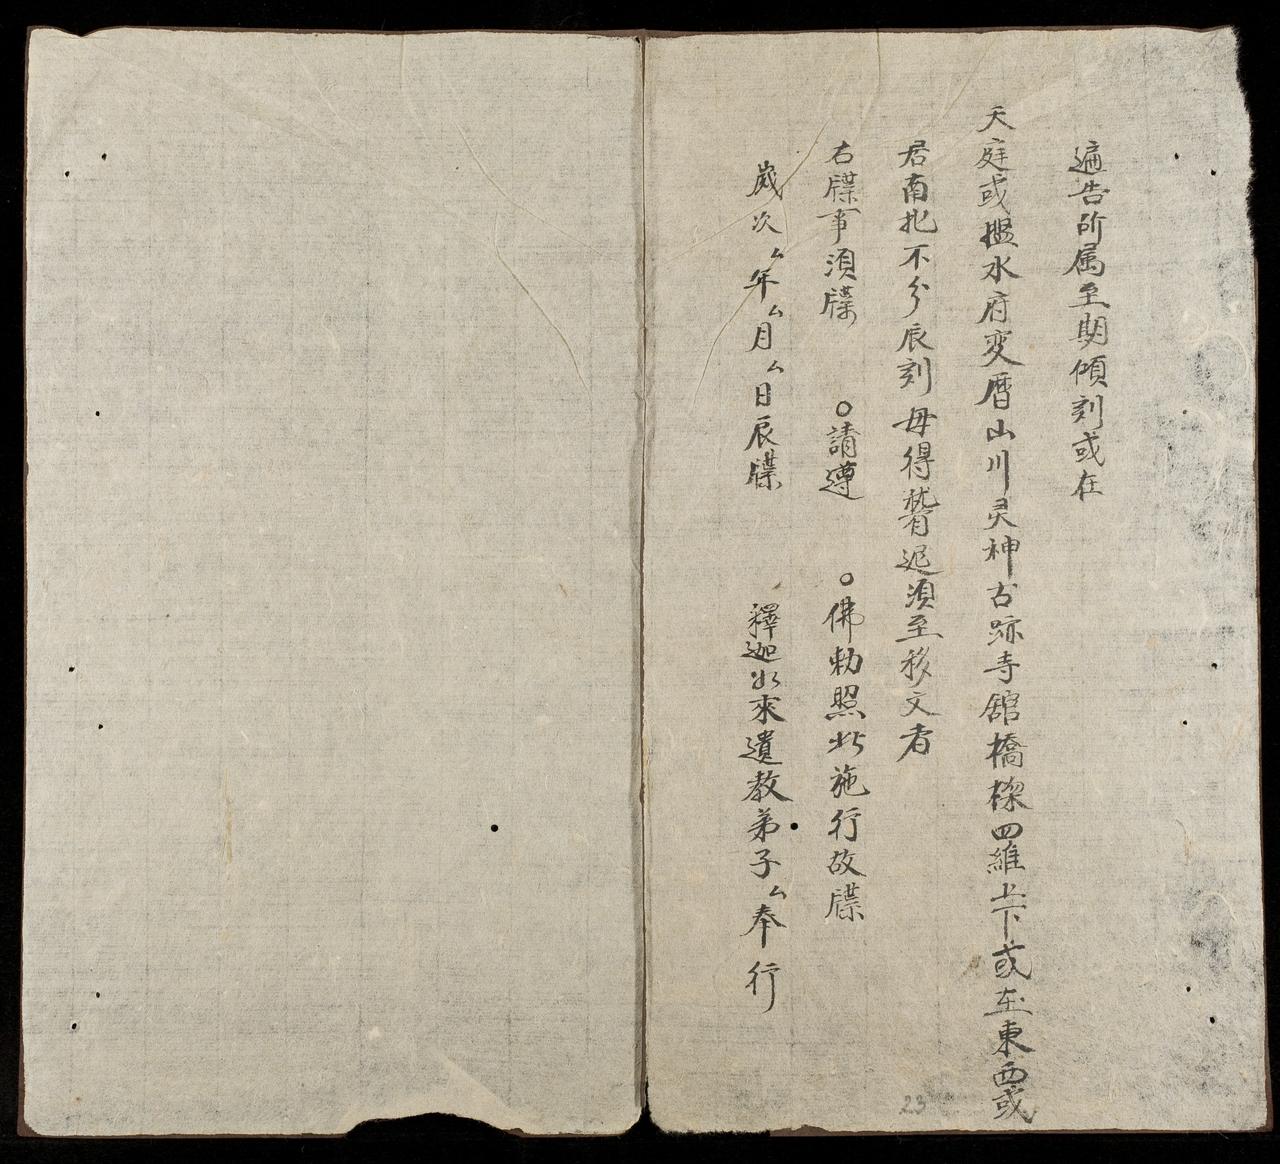 遍告所属至期傾刻或在
天庭或擥水府变曆山川灵神古跡寺舘橋樑四維上下或在東西或
居南北不分辰刻毋得稽迟須至移文者
右牒事須牒 ○請遵 ○佛勅照此施行故牒
嵗次厶年厶月厶日辰牒 釋迦如來遺教弟子厶奉行
23